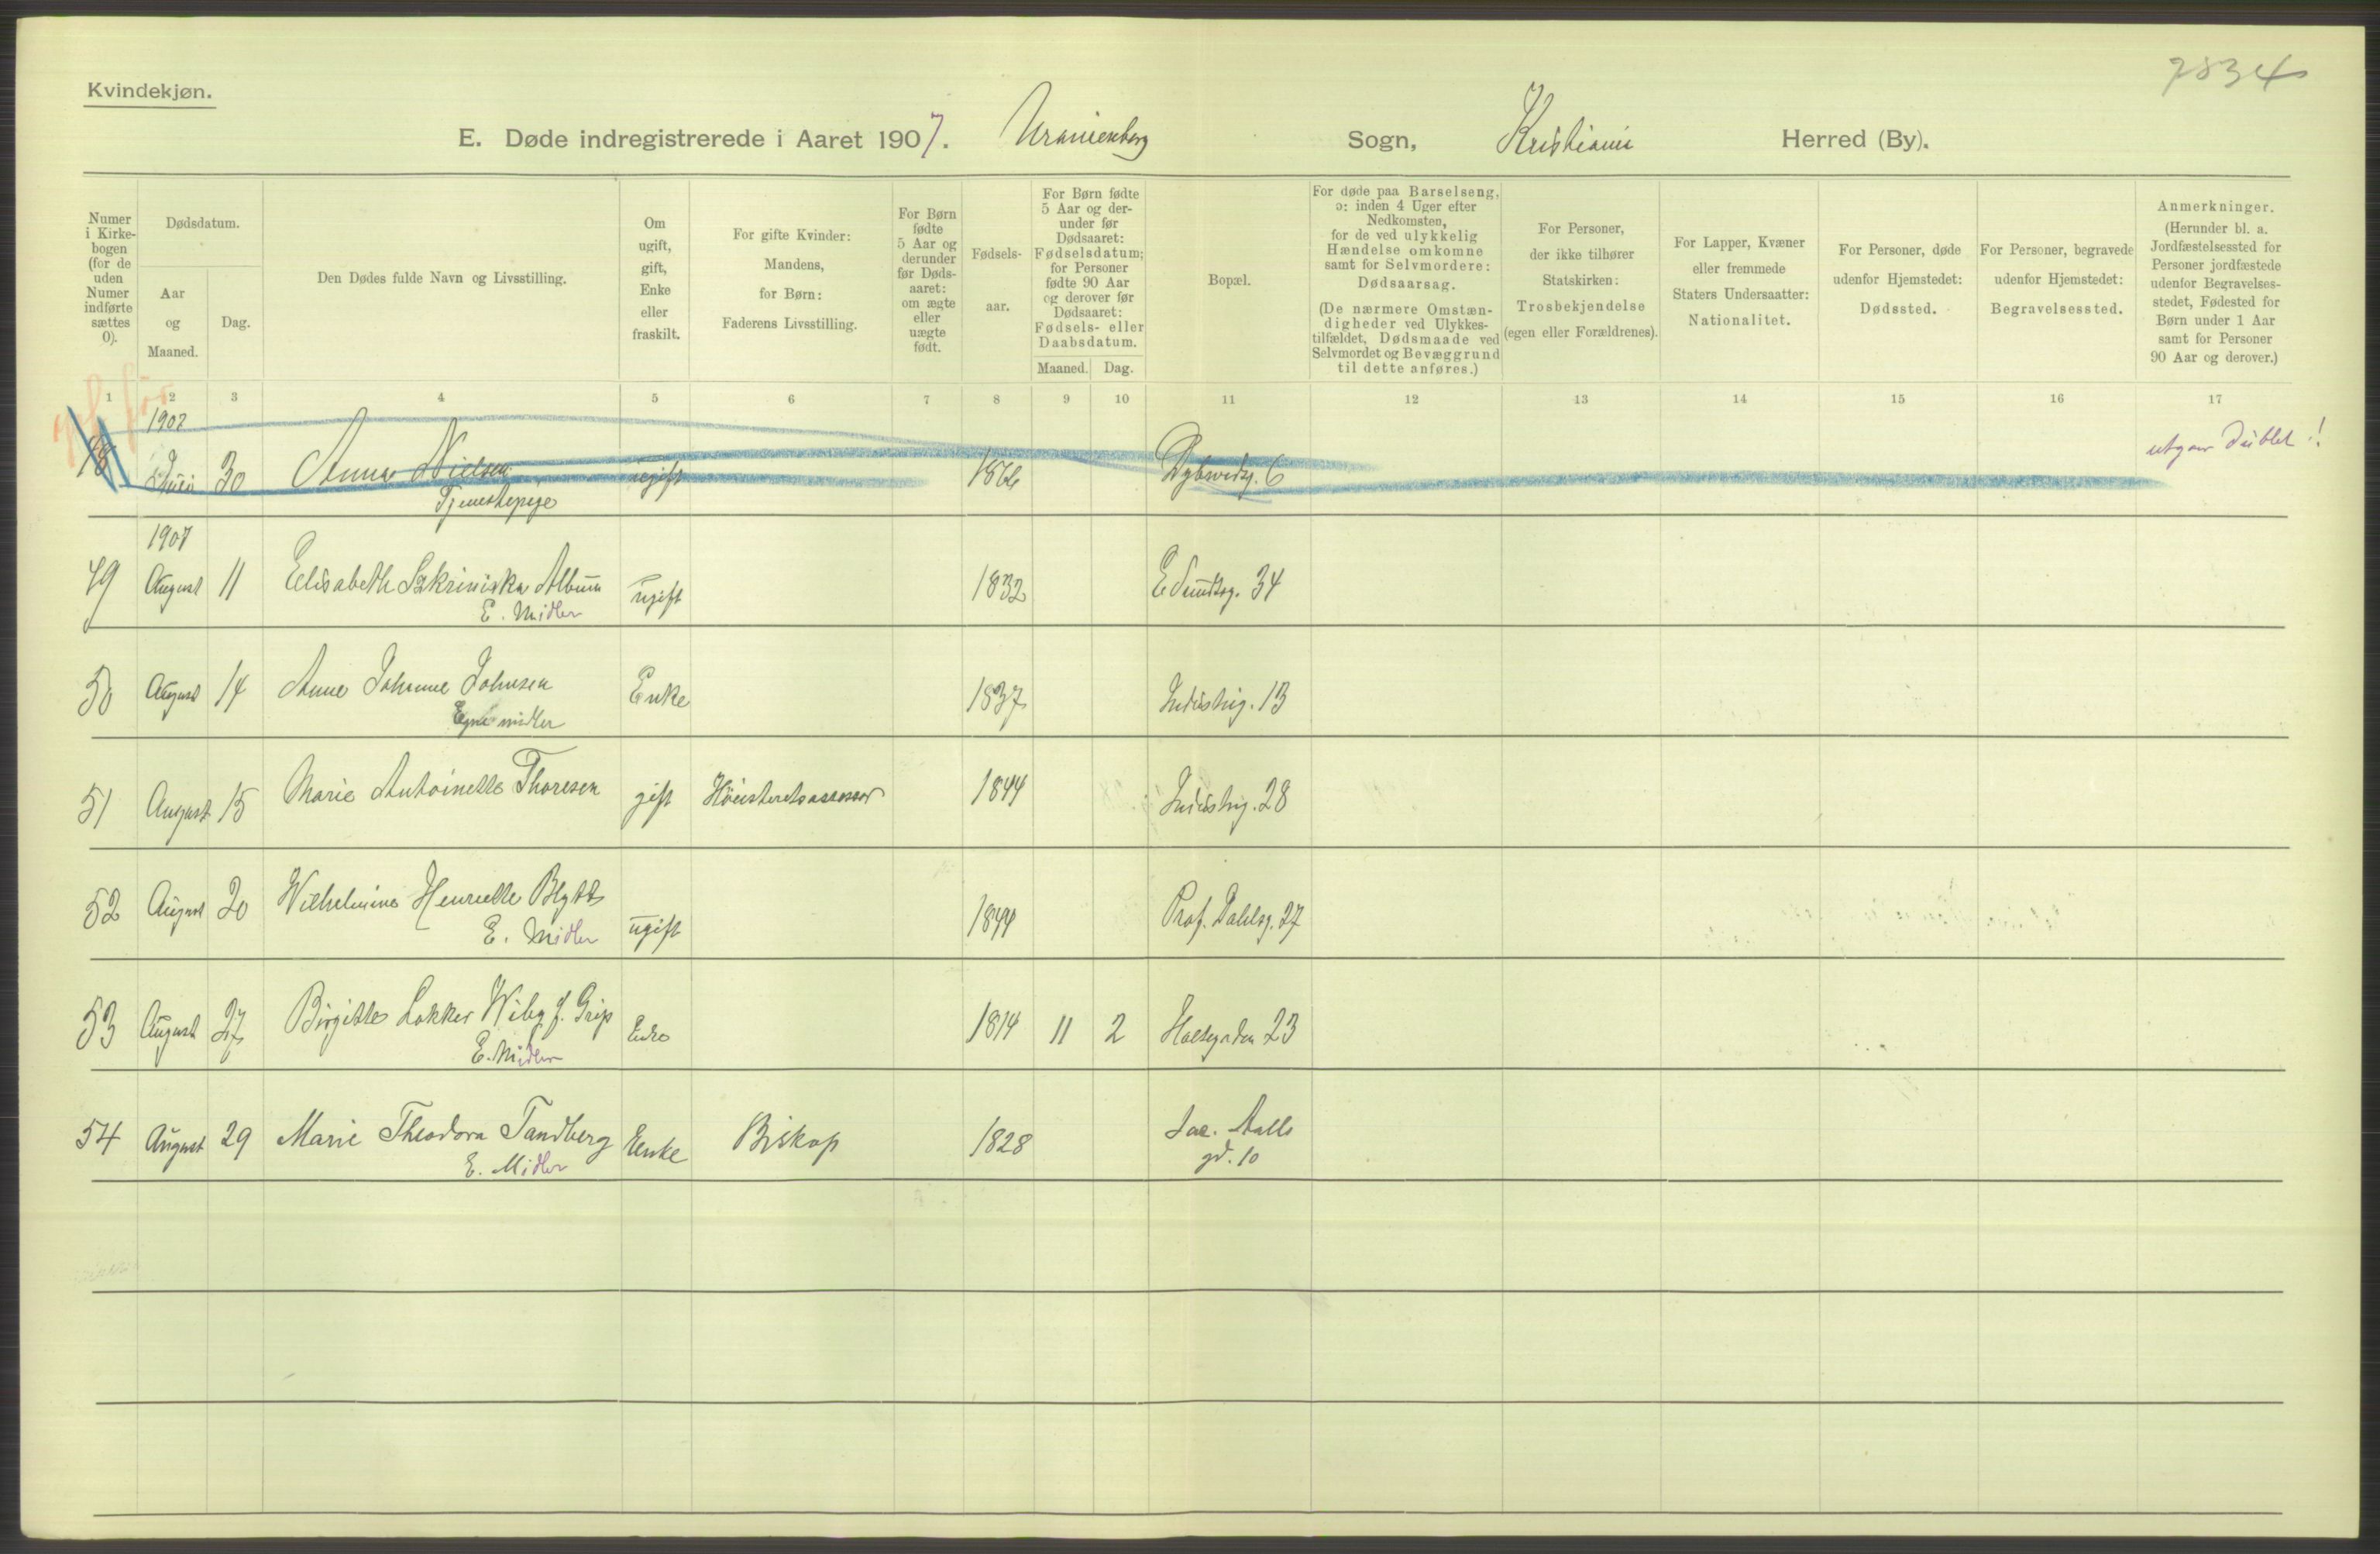 Kvindekjøn.
7834
E. Døde indregistrerede i Aaret 1907. Uranienborg Sogn, Kristiania Herred (By).
Numer i Kirke-bogen (for de uden Numer indførte sættes 0).
Dødsdatum.
Aar og Maaned.
Dag.
Den Dødes fulde Navn og Livsstilling.
Om ugift, gift, Enke eller fraskilt.
For gifte Kvinder: Mandens, for Børn: Faderens Livsstilling.
For Børn fødte 5 Aar og derunder før Døds-aaret: om ægte eller uægte født.
Fødsels-aar.
For Børn fødte 5 Aar og der-under før Dødsaaret: Fødselsdatum; for Personer fødte 90 Aar og derover før Dødsaaret: Fødsels- eller Daabsdatum.
Maaned. Dag.
Bopæl.
For døde paa Barselseng, ɔ: inden 4 Uger efter Nedkomsten, for de ved ulykkelig Hændelse omkomne samt for Selvmordere: Dødsaarsag.
(De nærmere Omstæn-digheder ved Ulykkes-tilfældet, Dødsmaade ved Selvmordet og Bevæggrund til dette anføres.)
For Personer, der ikke tilhører Statskirken: Trosbekjendelse (egen eller Forældrenes).
For Lapper, Kvæner eller fremmede Staters Undersaatter: Nationalitet.
For Personer, døde udenfor Hjemstedet: Dødssted.
For Personer, begravede udenfor Hjemstedet: Begravelsessted.
Anmerkninger. (Herunder bl. a. Jordfæstelsessted for Personer jordfæstede udenfor Begravelses-stedet, Fødested for Børn under 1 Aar samt for Personer 90 Aar og derover.)
1 2 3 4 5 6 7 8 9 10 11 12 13 14 15 16 17
1907
18 Juni 30 Anna Nielsen ugift Dybwadsg. 6 utgaar Dublet!
Tjenestepige
1907
49 August 11 Elisabeth Album ugift 1832 E Sundtsg. 34
E. Midler
50 August 14 Anne Johanne Johnsen Enke 1837 Industrig. 13
Egne midler
51 August 15 Marie Antoinette Thoresen gift Höiesteretsassessor 1844 Industrig. 28
52 August 20 Wilhelmine Henriette Blytt ugift 1844 Prof. Dahlsg. 27
E. Midler
53 August 27 Birgitte Lokker Wiby f. Grip Enke 1814 11 2 Holtegaden 23
E. Midler
54 August 29 Marie Theodora Tandberg Enke Biskop 1828 Jac. Aalls
E. Midler gd. 10